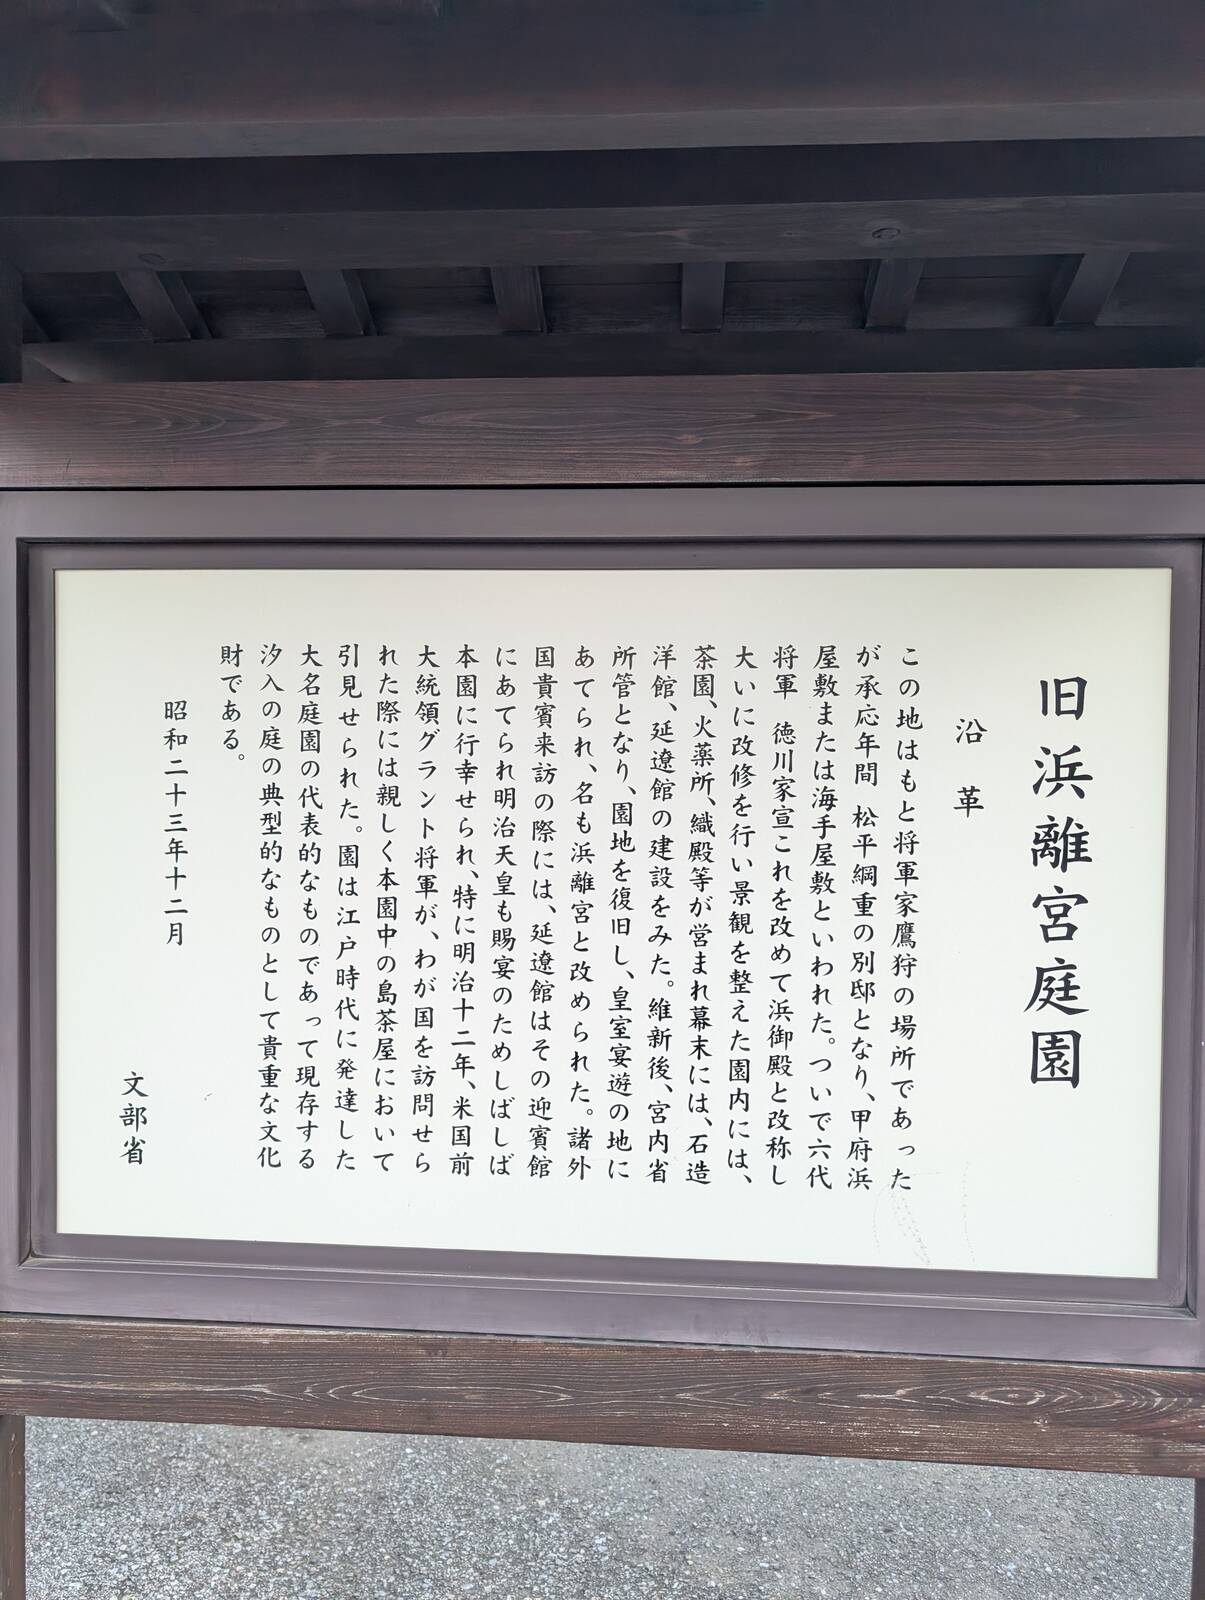 旧浜離宮庭園
沿革
この地はもと将軍家鷹狩の場所であった
が承応年間 松平綱重の別邸となり、甲府浜
屋敷または海手屋敷といわれた。ついで六代
将軍 徳川家宣これを改めて浜御殿と改称し
大いに改修を行い景観を整えた園内には、
茶園、火薬所、織殿等が営まれ幕末には、石造
洋館、延遼館の建設をみた。維新後、宮内省
所管となり、園地を復旧し、皇室宴遊の地に
あてられ、名も浜離宮と改められた。諸外
国貴賓来訪の際には、延遼館はその迎賓館
にあてられ明治天皇も賜宴のためしばしば
本園に行幸せられ、特に明治十二年、米国前
大統領グラント将軍が、わが国を訪問せら
れた際には親しく本園中の島茶屋において
引見せられた。園は江戸時代に発達した
大名庭園の代表的なものであって現存する
汐入の庭の典型的なものとして貴重な文化
財である。
昭和二十三年十二月
文部省